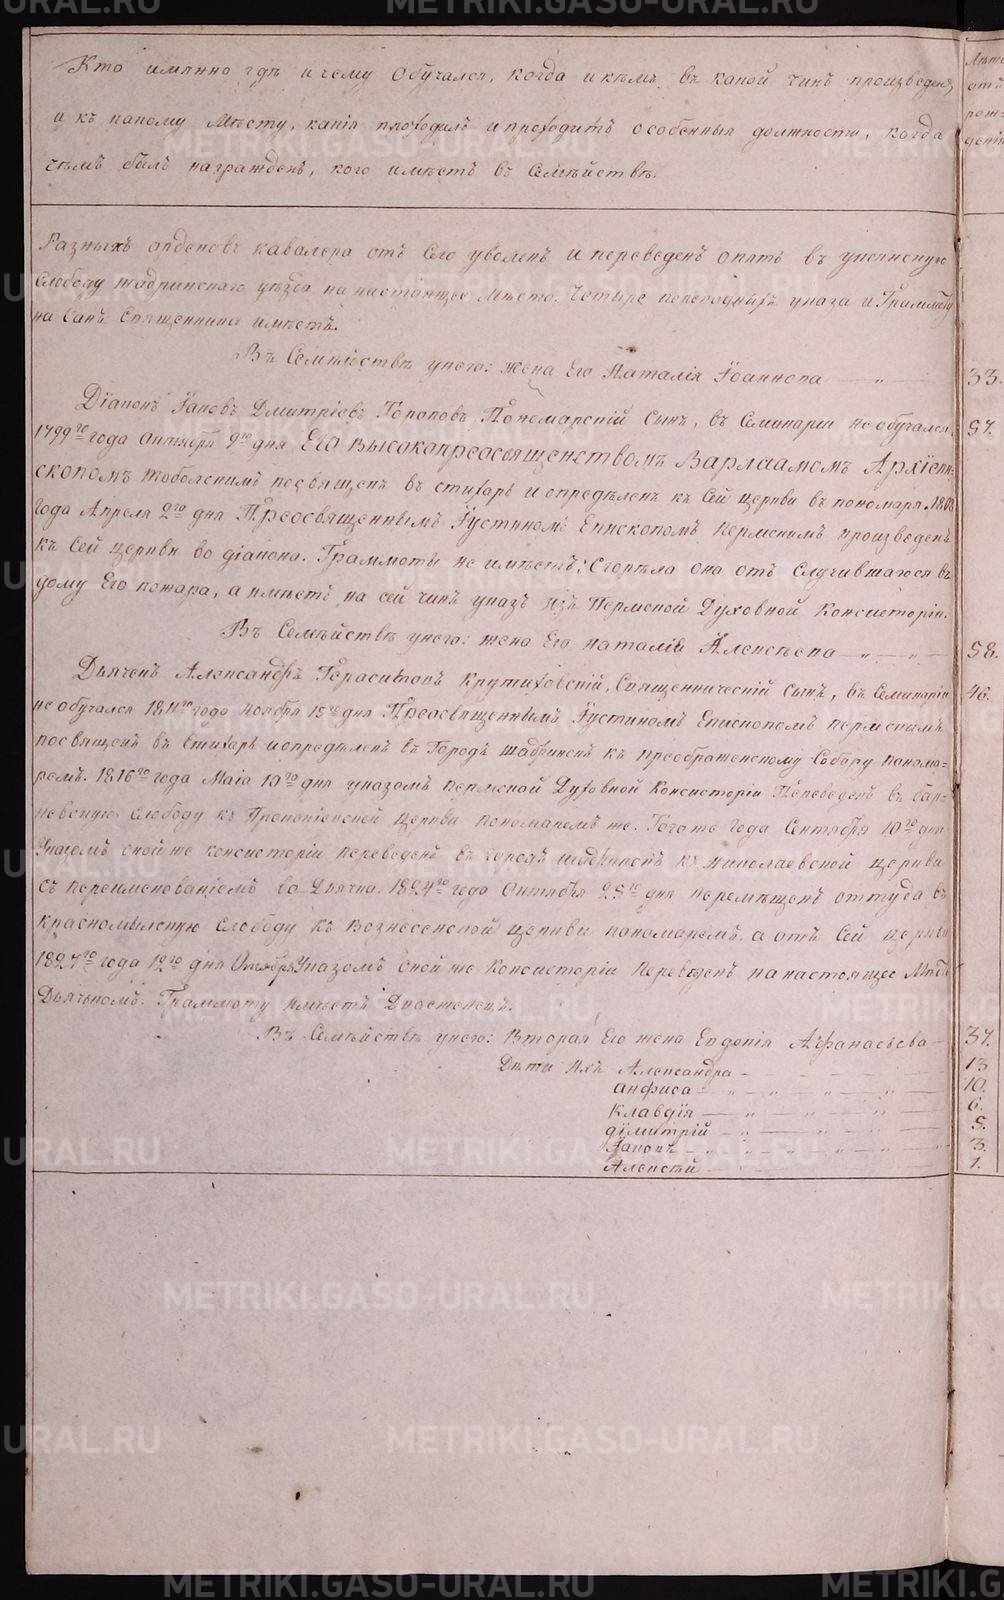 Кто имянно гдѣ и чему обучался, когда и кѣмъ въ какой чинъ произведенъ,
и къ какому мѣсту, какія проходилъ и проходитъ особенныя должности, когда
чѣмъ былъ награжденъ, кого имѣетъ въ семѣйствѣ.
Лѣта
отъ
рож-
денія
Разныхъ орденовъ кавалера отъ сего уволенъ и переведенъ опять въ
слободу Шадринскаго уѣзда на настоящее мѣсто. Четыре переходныхъ указа и Граммату
на санъ священника имѣетъ.
Въ семѣйствѣ унего: жена его Наталія Іоаннова — " — 33.
Діаконъ Іаковъ Дмитріевъ Топоповъ, Пономарскій сынъ, въ Семинаріи не обучался. 57.
1799го года октября 9го дня Его Высокопреосвященствомъ Варлаамомъ Архіепи-
скопомъ тобольскимъ посвященъ въ стихарь и опредѣленъ къ сей церкви въ пономаря.
года Апреля 2го дня Преосвященнымъ Іустиномъ Епископомъ Пермскимъ произведенъ
къ сей церкви во діакона. Граммоты не имѣетъ; сгорѣла она отъ случившагося въ
дому его пожара, а имѣетъ на сей чинъ указъ изъ Пермской Духовной Консисторіи.
Въ семѣйствѣ унего: жена его Наталія Алексѣева — " — " — 58.
Дьячекъ Александръ Герасимовъ Крутиховскій, Священническій сынъ, въ Семинаріи 46.
не обучался 1811го года Ноября 15го дня Преосвященнымъ Іустиномъ Епископомъ пермскимъ
посвященъ въ стихарь и опредѣленъ въ городъ Шадринскъ къ преображенскому Собору понома-
ремъ. 1816го года Маія 10го дня указомъ пермской Духовной Консисторіи переведенъ въ бар-
невскую слободу къ Прокопіевской церкви пономаремъ же. Того же года Сентября 10го дня
Указомъ оной же консисторіи переведенъ въ городъ Шадринскъ къ Николаевской церкви
съ переименованіемъ во Дьячка. 1824го года октября 25го дня перемѣщенъ оттуда въ
красномыльскую слободу къ Вознесенской церкви пономаремъ, а отъ сей церкви
1827го года 12го дня Октября Указомъ оной же Консисторіи переведенъ на настоящее мѣсто
Дьячькомъ. Граммоту имѣетъ
Въ семѣйствѣ унего: Вторая его жена Евдокія Афанасьева — 37.
Дѣти ихъ Александра — 13
Анфиса — " — " — 10.
Клавдія — " — " — 6.
Димитрій — " — " — 5.
Іаковъ — " — " — 3.
Алексѣй — 1.
METRIKI.GASO-URAL.RU